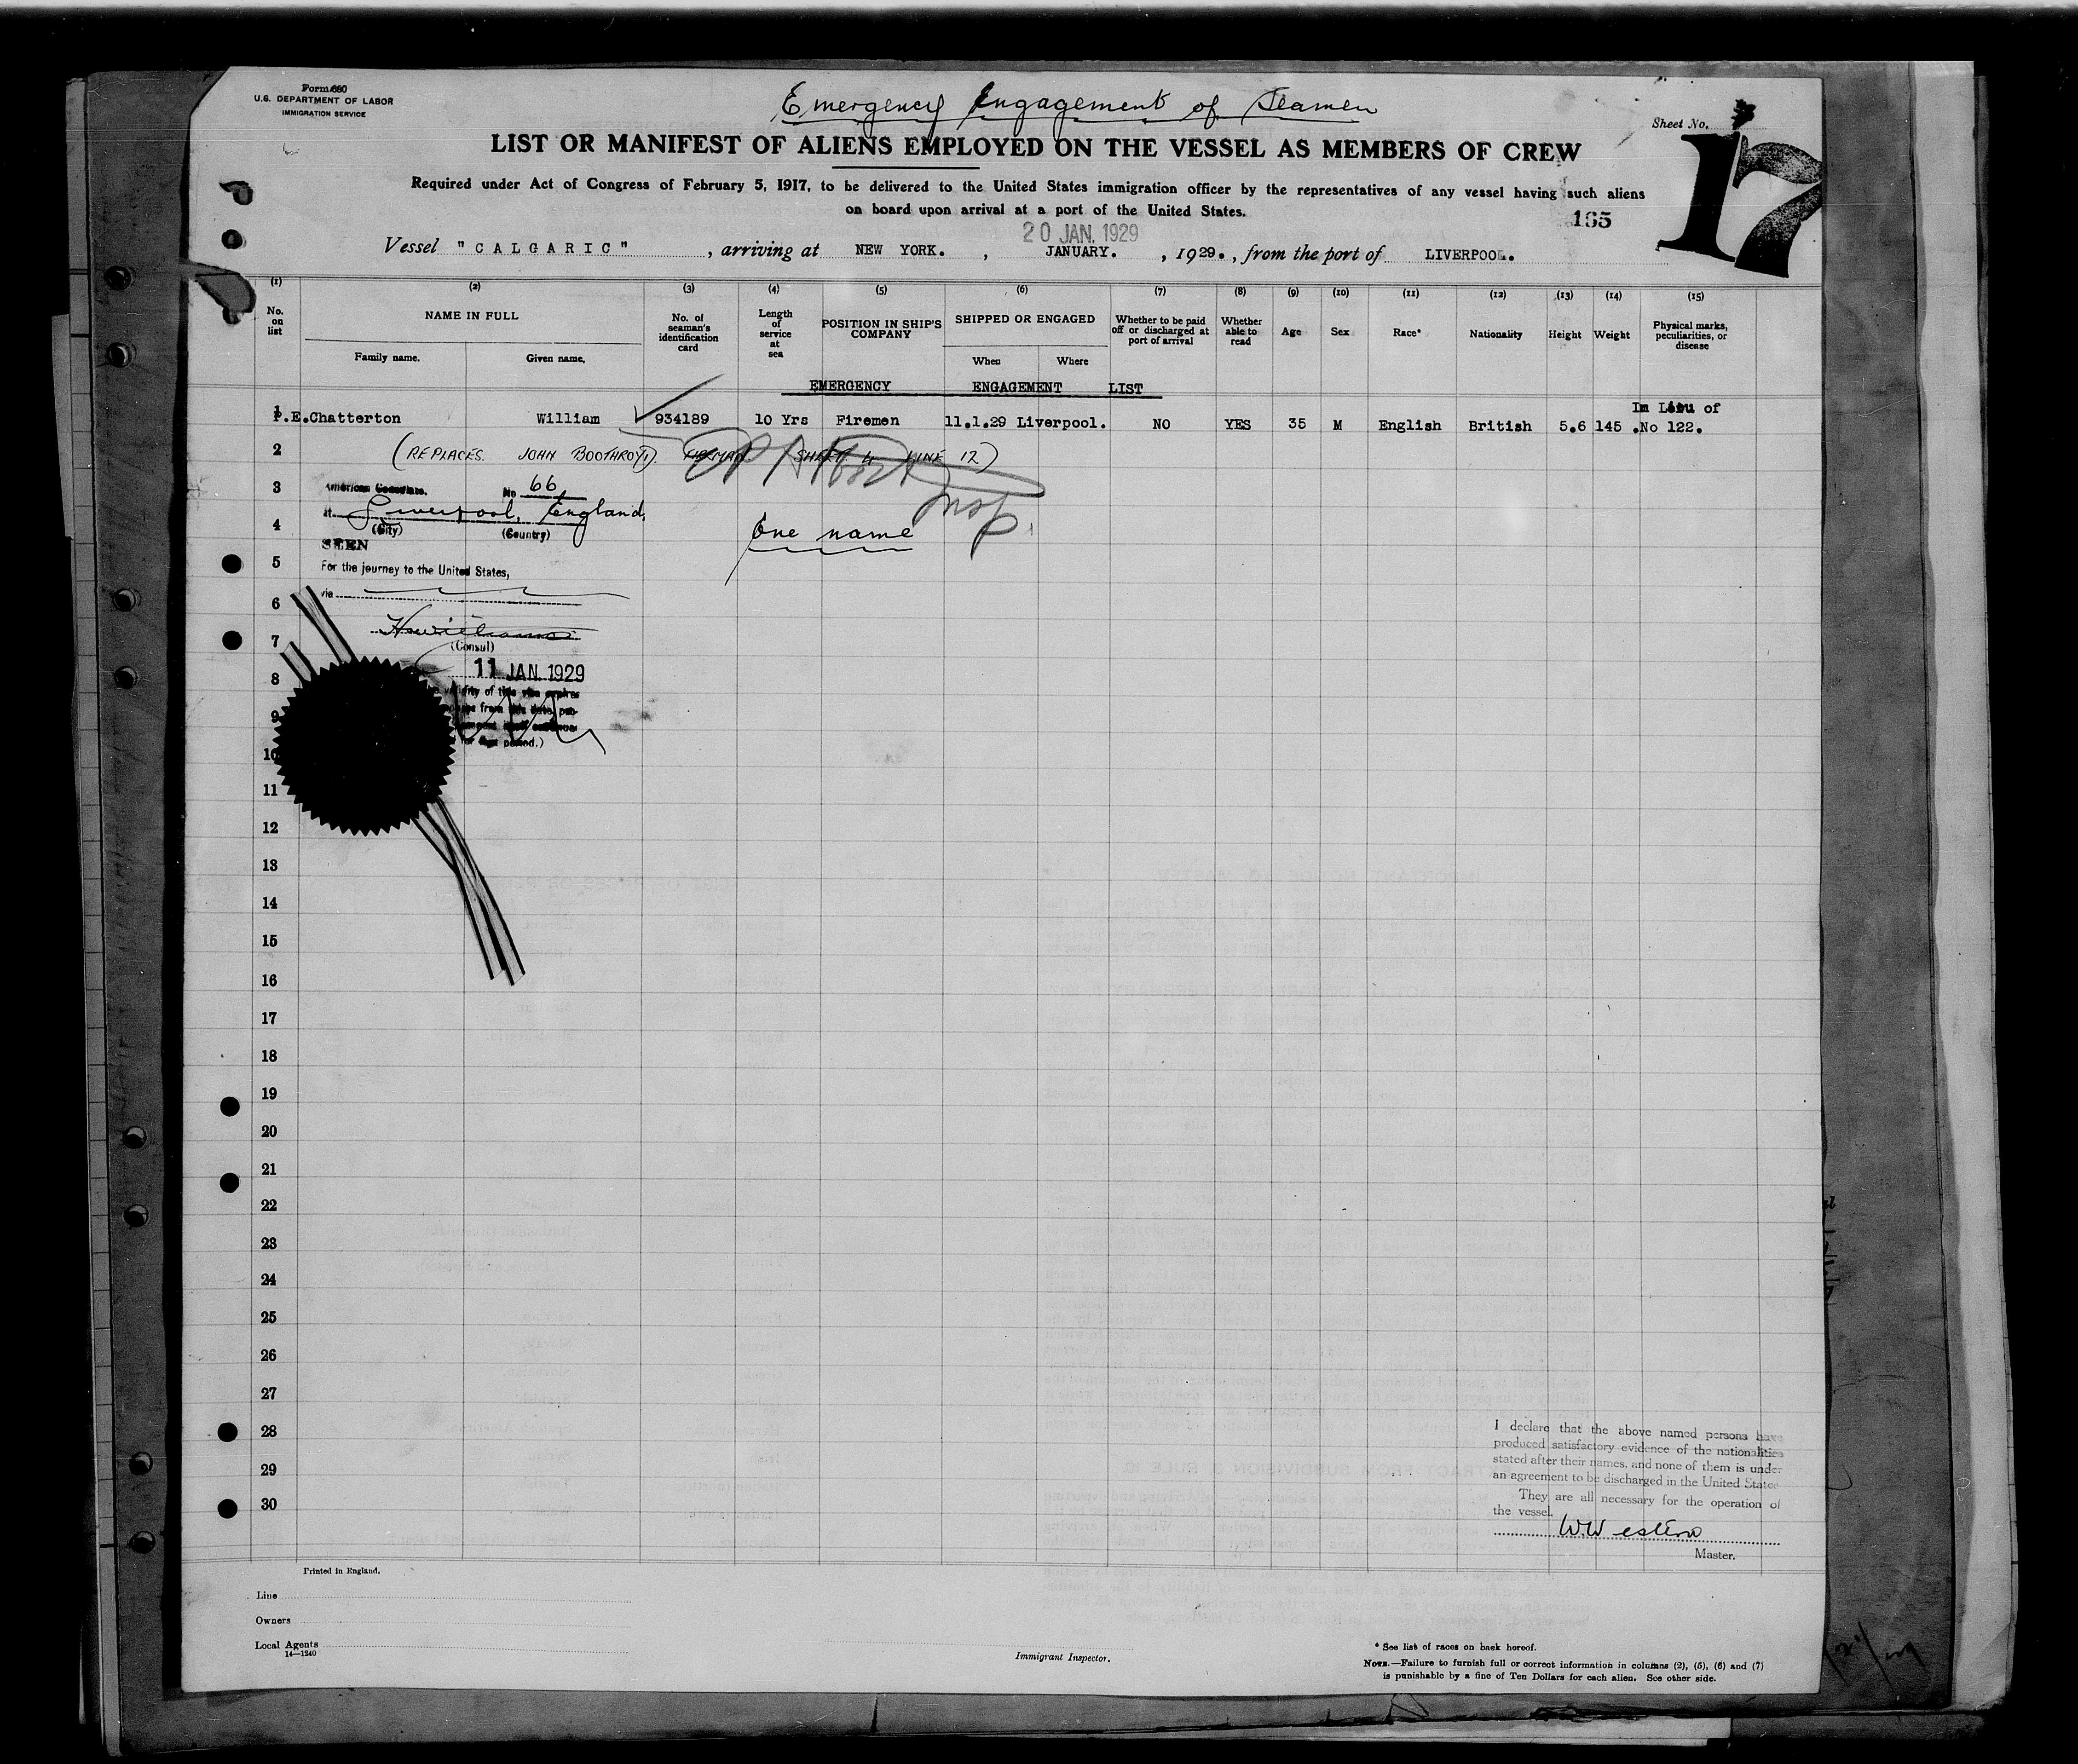 Form 680
U.S. DEPARTMENT OF LABOR
IMMIGRATION SERVICE
Emergency Engagement of Seamen
Sheet No.
17
LIST OR MANIFEST OF ALIENS EMPLOYED ON THE VESSEL AS MEMBERS OF CREW
Required under Act of Congress of February 5, 1917, to be delivered to the United States immigration officer by the representatives of any vessel having such aliens
on board upon arrival at a port of the United States.
165
20 JAN. 1929
Vessel "CALGARIC", arriving at NEW YORK. , JANUARY. , 1929., from the port of LIVERPOOL.
(1) (2) (3) (4) (5) (6) (7) (8) (9) (10) (11) (12) (13) (14) (15)
No. on list
NAME IN FULL
Family name. Given name.
No. of seaman's identification card
Length of service at sea
POSITION IN SHIP'S COMPANY
SHIPPED OR ENGAGED
When Where
Whether to be paid off or discharged at port of arrival
Whether able to read
Age
Sex
Race*
Nationality
Height
Weight
Physical marks, peculiarities, or disease
EMERGENCY ENGAGEMENT LIST
1 P.E.Chatterton William 934189 10 Yrs Firemen 11.1.29 Liverpool. NO YES 35 M English British 5.6 145 In Lieu of .No 122.
2 (REPLACES. JOHN BOOTHROYD. FIREMAN SHEET 4 LINE 12)
3 American Consulate. No 66
at Liverpool, England,
4 (City) (Country)
One name
Insp.
SEEN
5 For the journey to the United States,
via
6
7
(Consul)
8 11 JAN. 1929
validity of this visa expires
from this date, pro-
9
for period.)
10
11
12
13
14
15
16
17
18
19
20
21
22
23
24
25
26
27
28
29
30
I declare that the above named persons have
produced satisfactory evidence of the nationalities
stated after their names, and none of them is under
an agreement to be discharged in the United States
They are all necessary for the operation of
the vessel.
Master.
Printed in England.
Line
Owners
Local Agents
14—1240
Immigrant Inspector.
* See list of races on back hereof.
NOTE.—Failure to furnish full or correct information in columns (2), (5), (6) and (7)
is punishable by a fine of Ten Dollars for each alien. See other side.